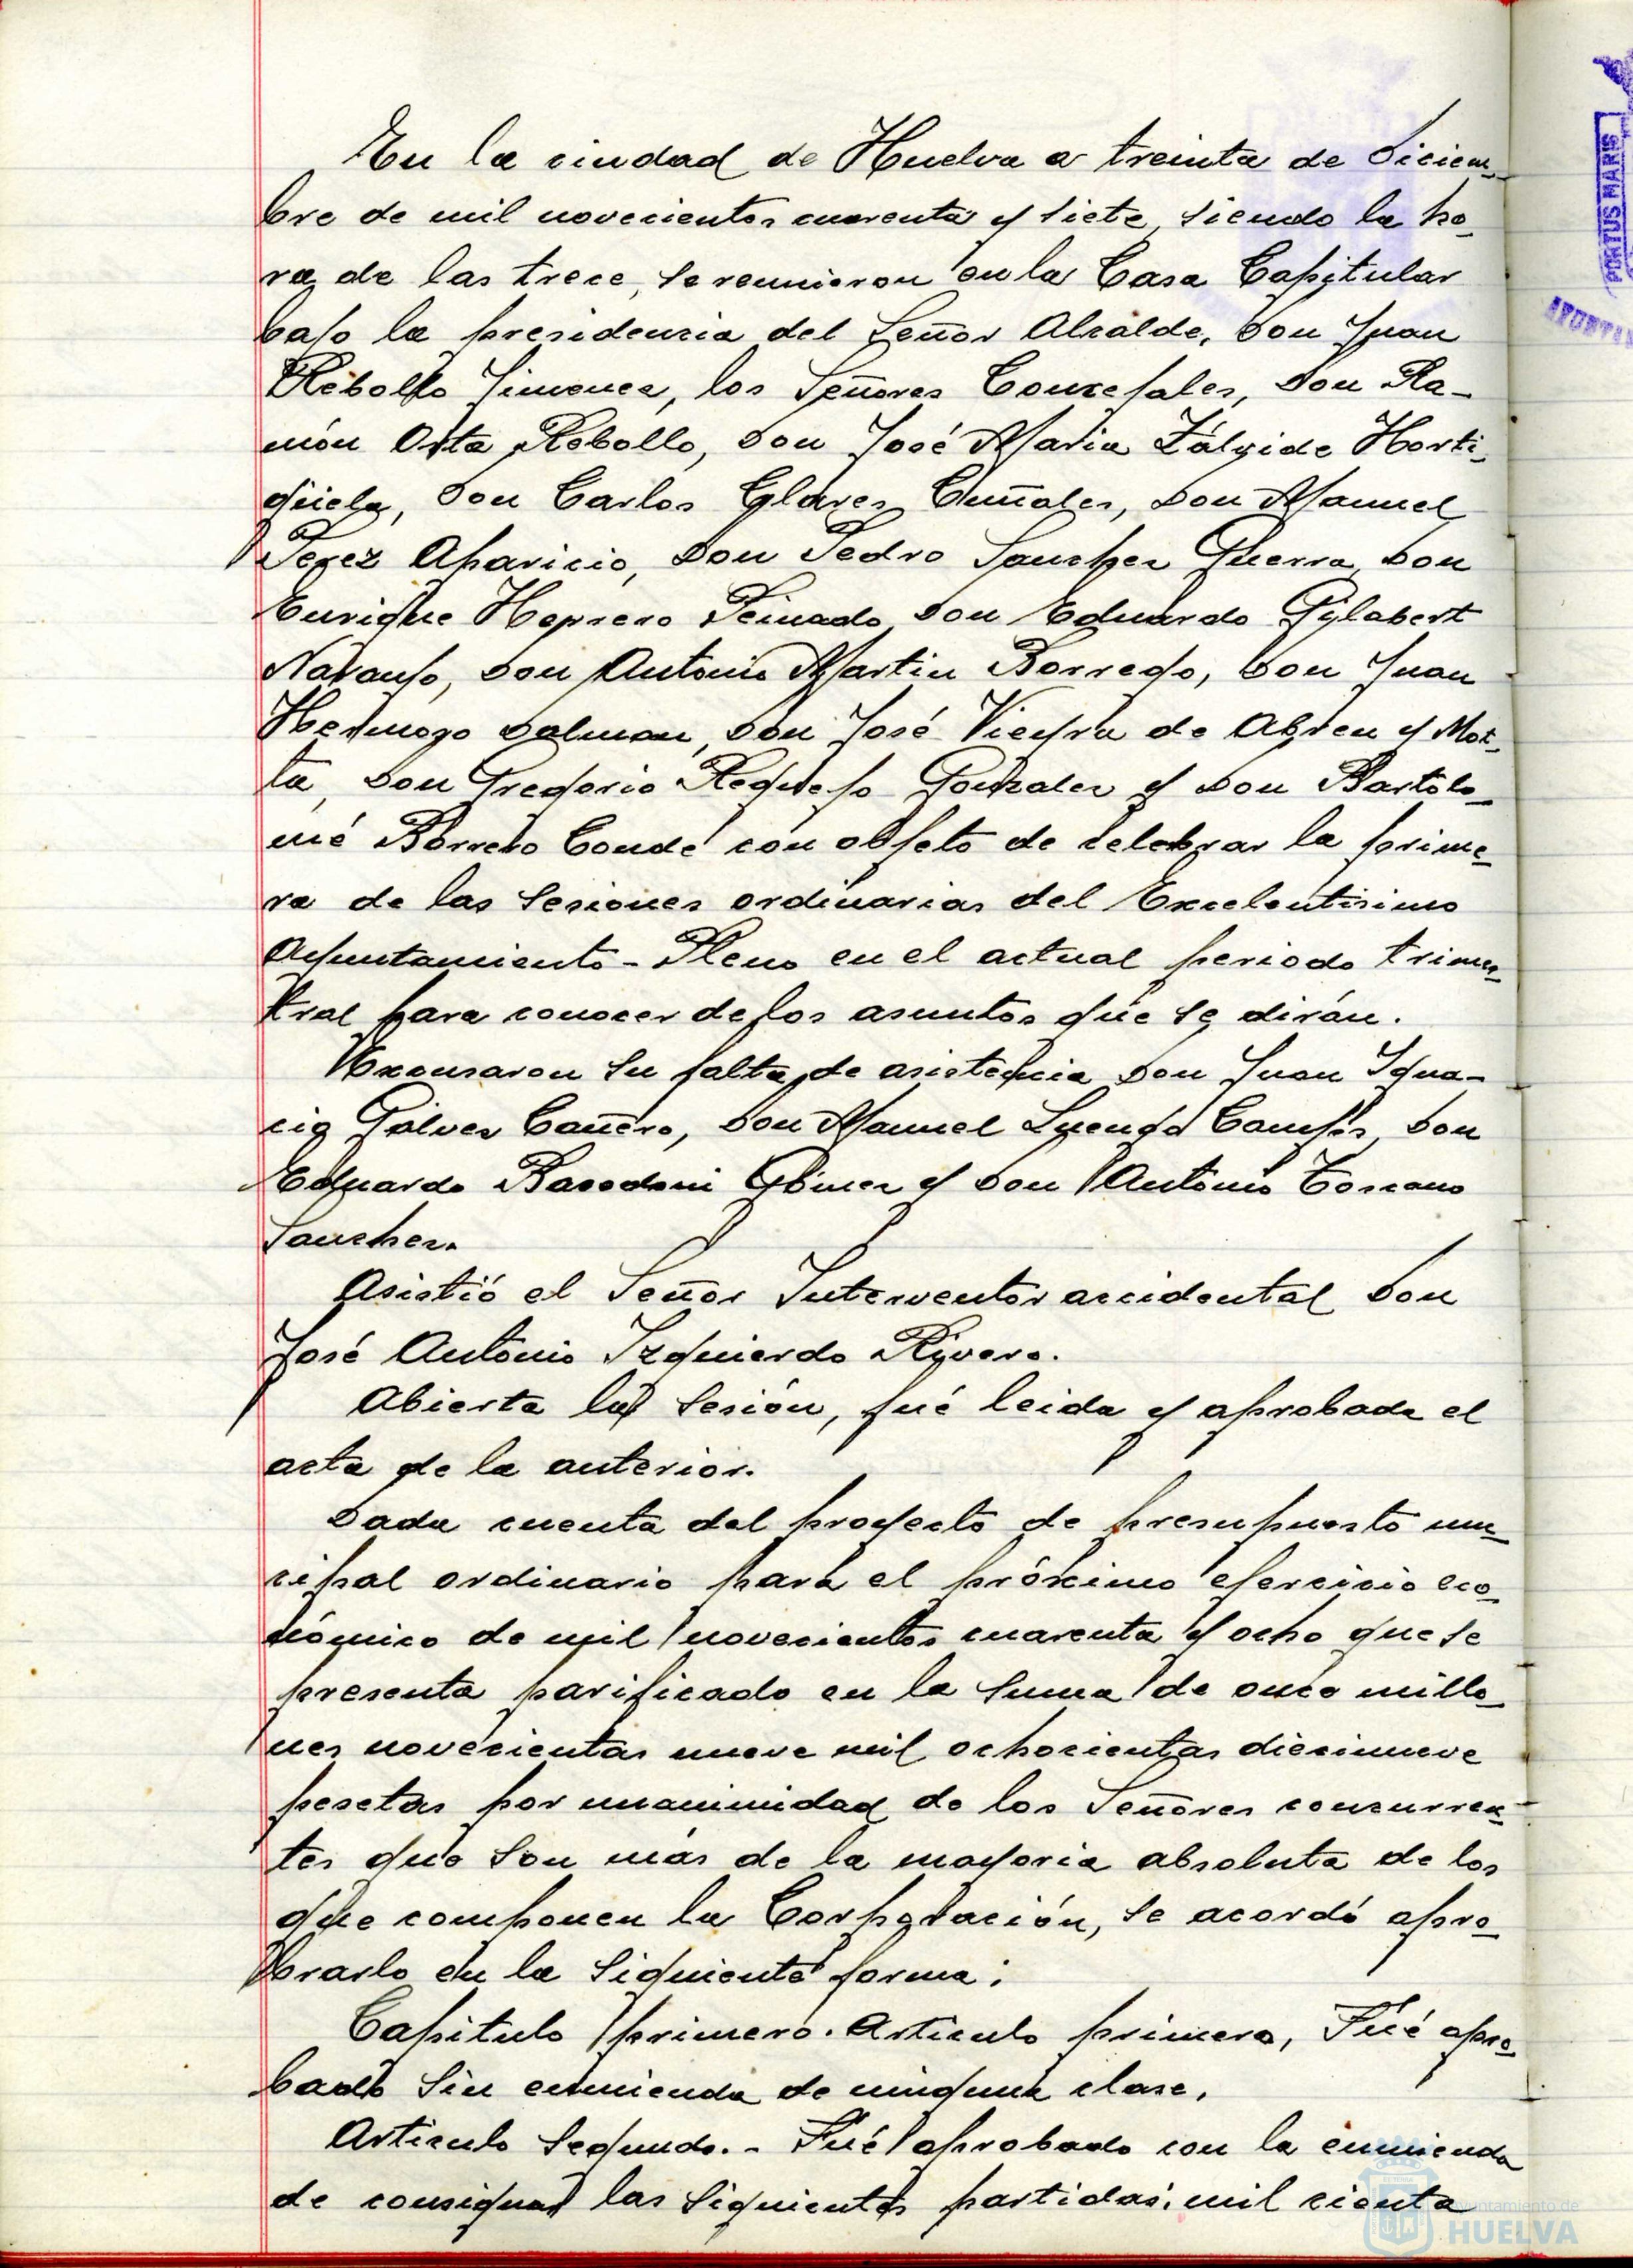 En la ciudad de Huelva a treinta de diciem-
bre de mil novecientos cuarenta y siete, siendo la ho-
ra de las trece, se reunieron en la Casa Capitular
bajo la presidencia del Señor Alcalde, Don Juan
Rebollo Jimenez, los Señores Concejales, Don Ra-
món Orta Rebollo, Don José Maria Zálvide Horti-
güela, Don Carlos Glares Cuñales, Don Manuel
Perez Aparicio, Don Pedro Sanchez Guerra, Don
Enrique Herrero Peinado, Don Eduardo Gilabert
Naranjo, Don Antonio Martin Borrego, Don Juan
Hermoso Dolman, Don José Vieyra de Abreu y Mot-
ta, Don Gregorio Requejo Gonzalez y Don Bartolo-
mé Borrero Conde con objeto de celebrar la prime-
ra de las sesiones ordinarias del Excelentisimo
Ayuntamiento-Pleno en el actual periodo trimes-
tral para conocer de los asuntos que se dirán.
Excusaron su falta de asistencia Don Juan Igna-
cio Gálvez Cañero, Don Manuel Luengo Campos, Don
Eduardo Bacedoni Gómez y Don Antonio Toscano
Sanchez.
Asistió el Señor Interventor accidental Don
José Antonio Izquierdo Rivero.
Abierta la sesión, fué leida y aprobada el
acta de la anterior.
Dada cuenta del proyecto de presupuesto mu-
cipal ordinario para el próximo ejercicio eco-
nómico de mil novecientos cuarenta y ocho que se
presenta parificado en la suma de once millo-
nes novecientas nueve mil ochocientas diecinueve
pesetas por unanimidad de los Señores concurren-
tes que son más de la mayoria absoluta de los
que componen la Corporación, se acordó apro-
brarlo en la siguiente forma:
Capitulo primero. Articulo primero, Fué apro-
bado sin enmienda de ninguna clase.
Articulo segundo.- Fué aprobado con la enmienda
de consignar las siguientes partidas: mil cienta
PORTUS MARIS
Ayuntamiento de
HUELVA